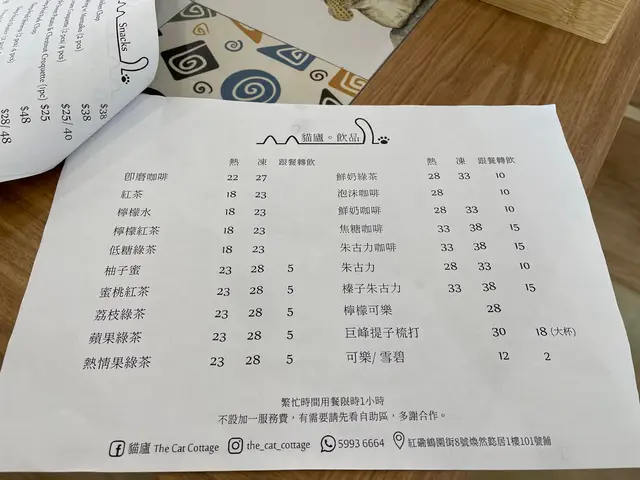 Snacks
$38
$38
$25
$25/ 40
$48
$28/ 48
貓廬。飲品
熱 凍 跟餐轉飲
即磨咖啡 22 27
紅茶 18 23
檸檬水 18 23
檸檬紅茶 18 23
低糖綠茶 18 23
柚子蜜 23 28 5
蜜桃紅茶 23 28 5
荔枝綠茶 23 28 5
蘋果綠茶 23 28 5
熱情果綠茶 23 28 5
熱 凍 跟餐轉飲
鮮奶綠茶 28 33 10
泡沫咖啡 28 10
鮮奶咖啡 28 33 10
焦糖咖啡 33 38 15
朱古力咖啡 33 38 15
朱古力 28 33 10
榛子朱古力 33 38 15
檸檬可樂 28
巨峰提子梳打 30 18 (大杯)
可樂/ 雪碧 12 2
繁忙時間用餐限時1小時
不設加一服務費，有需要請先看自助區，多謝合作。
貓廬 The Cat Cottage the_cat_cottage 5993 6664 紅磡鶴園街8號煥然懿居1樓101號舖